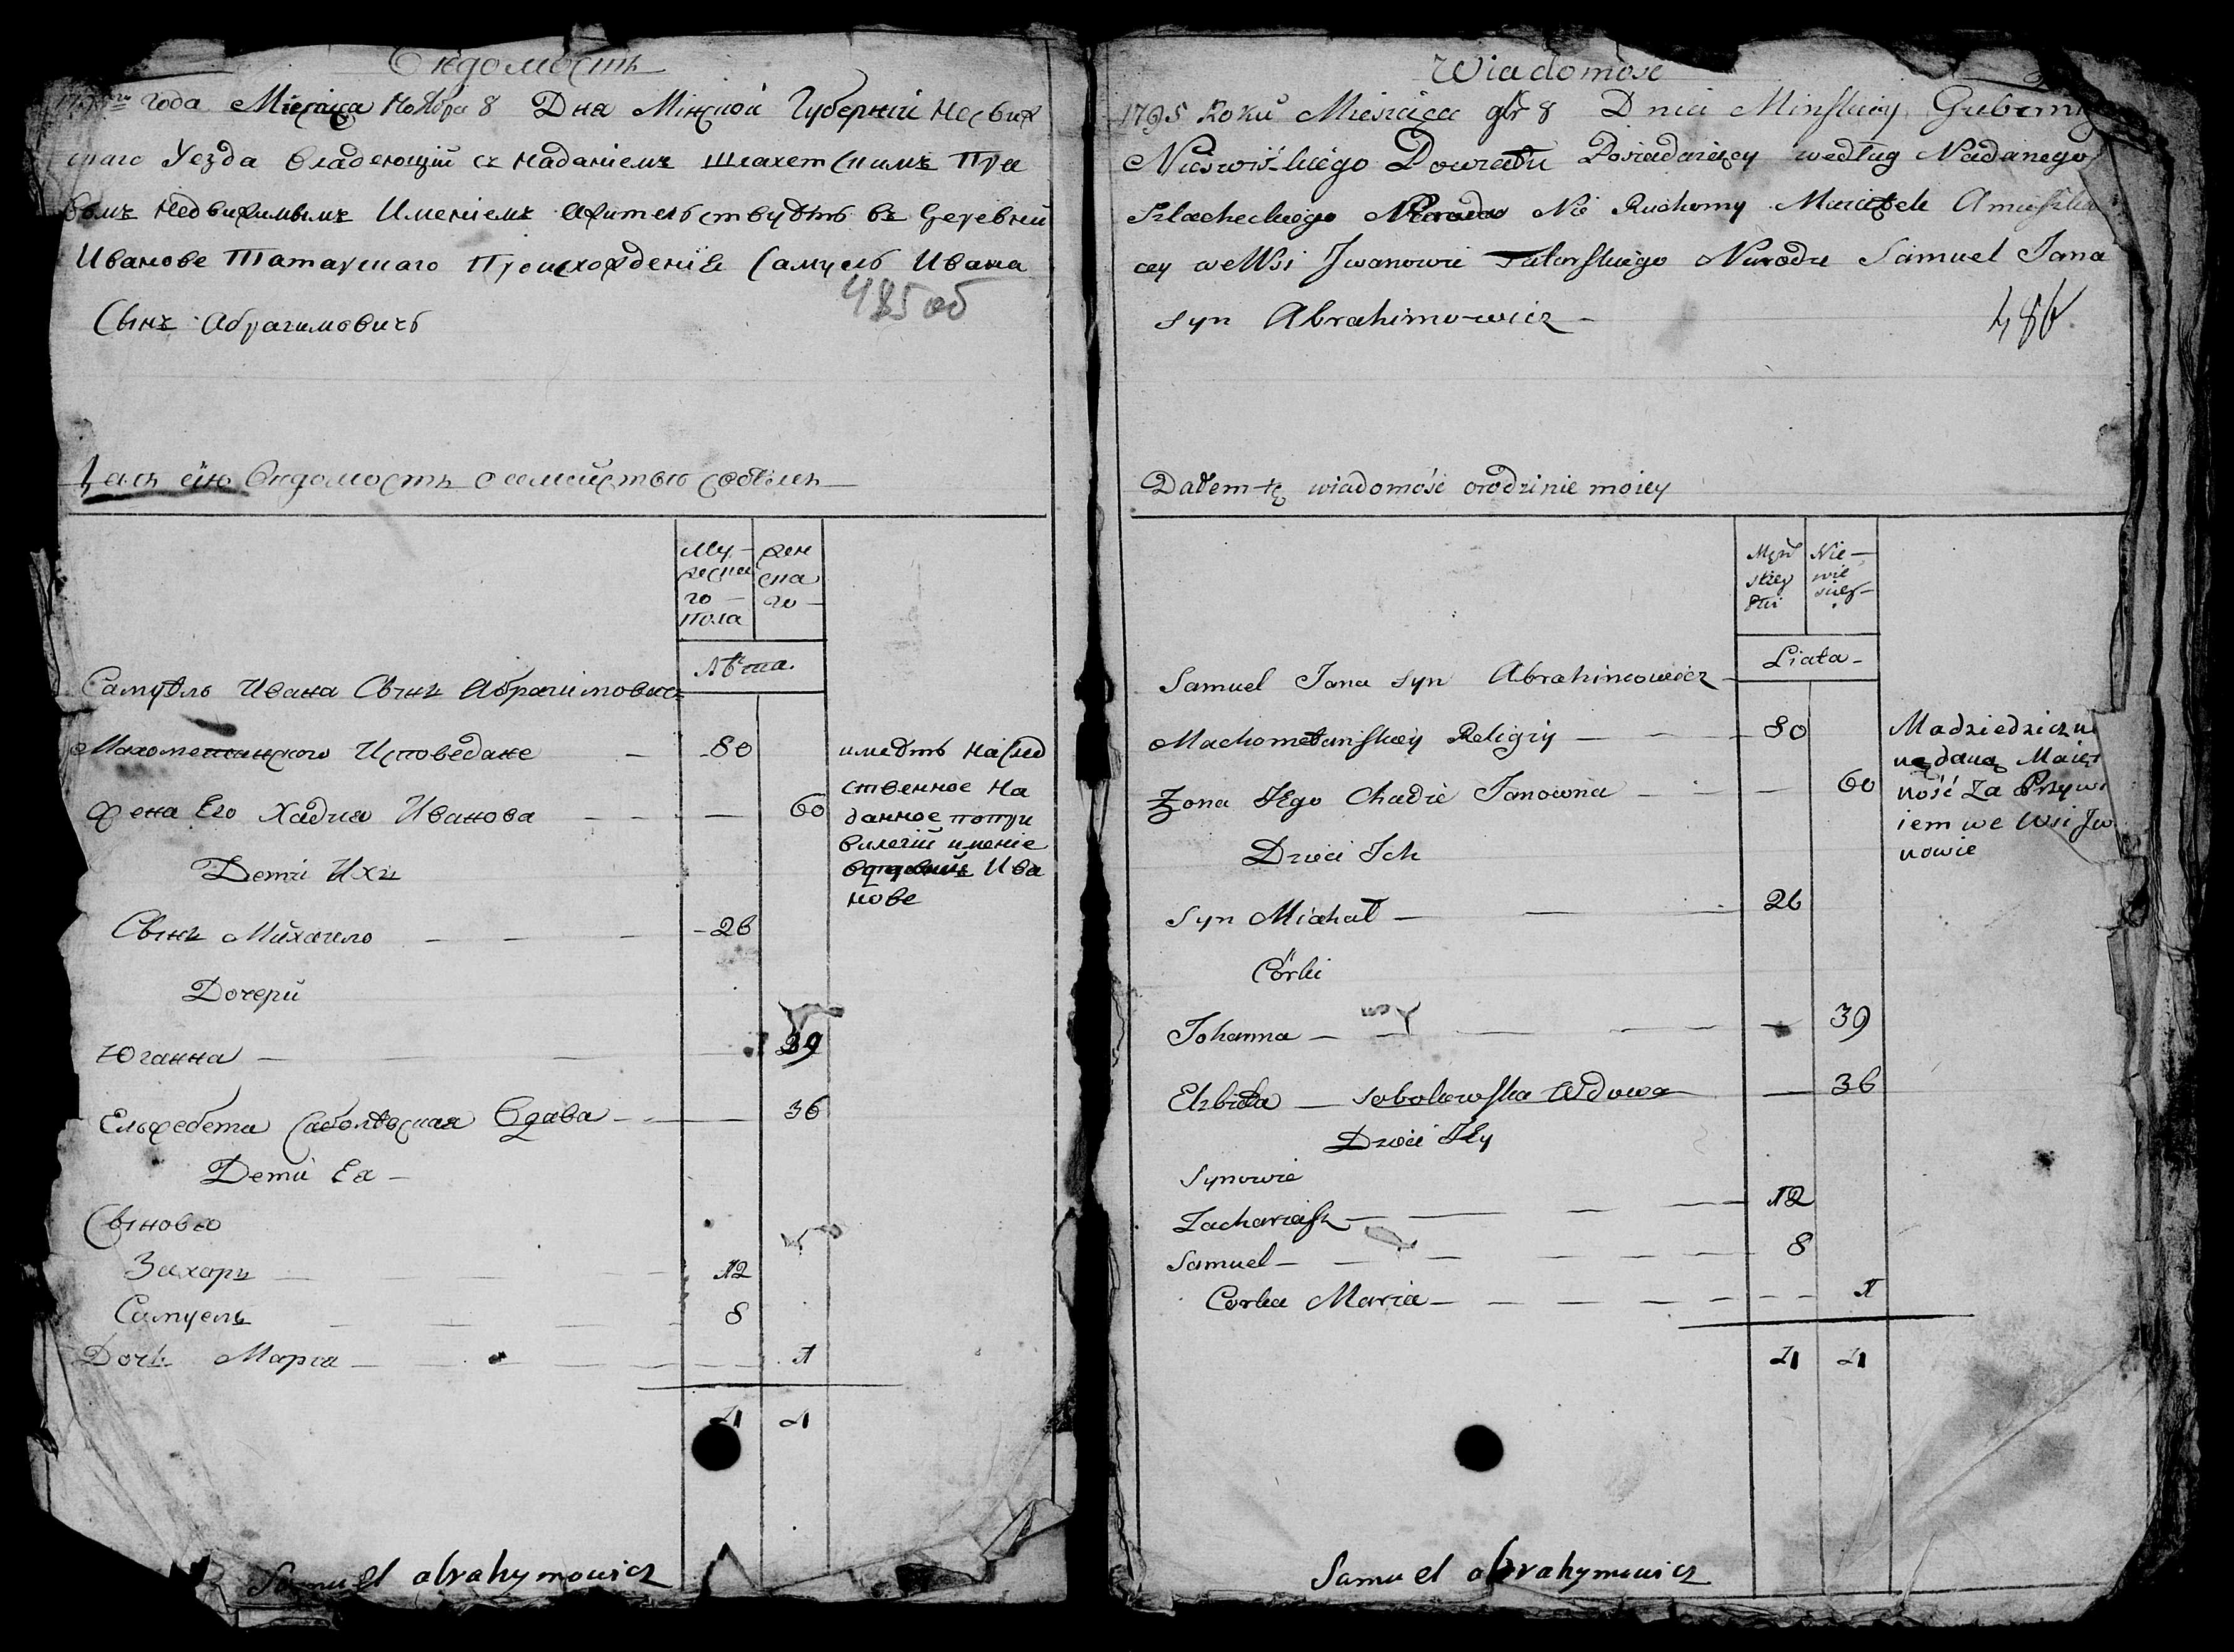 Ведомость
года Месяца Ноября 8 Дня Минской Губернии Несвиж
скаго Уезда владеющий съ наданіемъ шляхетскимъ Пра
вомъ недвижимымъ Именіемъ жительствуетъ въ Деревни
Иванове Татарскаго Происхожденія Самуель Ивана
485 об
Сынъ Абрагимовичь
Далъ сію ведомость о семействью своемъ
Му- жен
жеска ска
го го
пола
Лѣта.
Самуѣль Ивана Сынъ Абрагимовичъ
Махометанского Исповедане 80 имеетъ наслед
Жена Его Хадия Иванова 60 ственное на
данное попри
вилегіи имение
Дети Ихъ
въ деревни Ива
нове
Сынъ Михаило 26
Дочери
Юганна 39
Ельжебета Саболевская Вдава 36
Дети Ея
Сыновя
Захаръ 12
Самуель 8
Дочь Мария 1
4 4
Samuel abrahymowicz
Wiadomosc
1795 Roku Miesiąca gbr 8 Dnia Minskiey Guberniy
Nieswiżkiego Powiatu Posiadaiącey według Nadanego
Szlacheckiego Nie Ruchomy Maiątek
cey we Wsi Iwanowie Tatarskiego Narodu Samuel Jana
syn Abrahimowicz
486
Dałem tę wiadomość orodzinie moiey
Męz Nie
skiey wie
płci sciey
Liata
Samuel Jana syn Abrahimowicz
Machometanskiey Religiy 80
Ma dziedziczną
nadaną Maięt
Zona Jego Chadie Janowna 60 ność Za Przywi
iem we Wsi Iw
Dzieci Ich nowie
Syn Michał 26
Córki
Johanna 39
Elzbieta Sobolewska Wdowa 36
Dzieci Jey
Synowie
Zachariasz 12
Samuel 8
Corka Maria 1
4 4
Samuel abrahymowicz